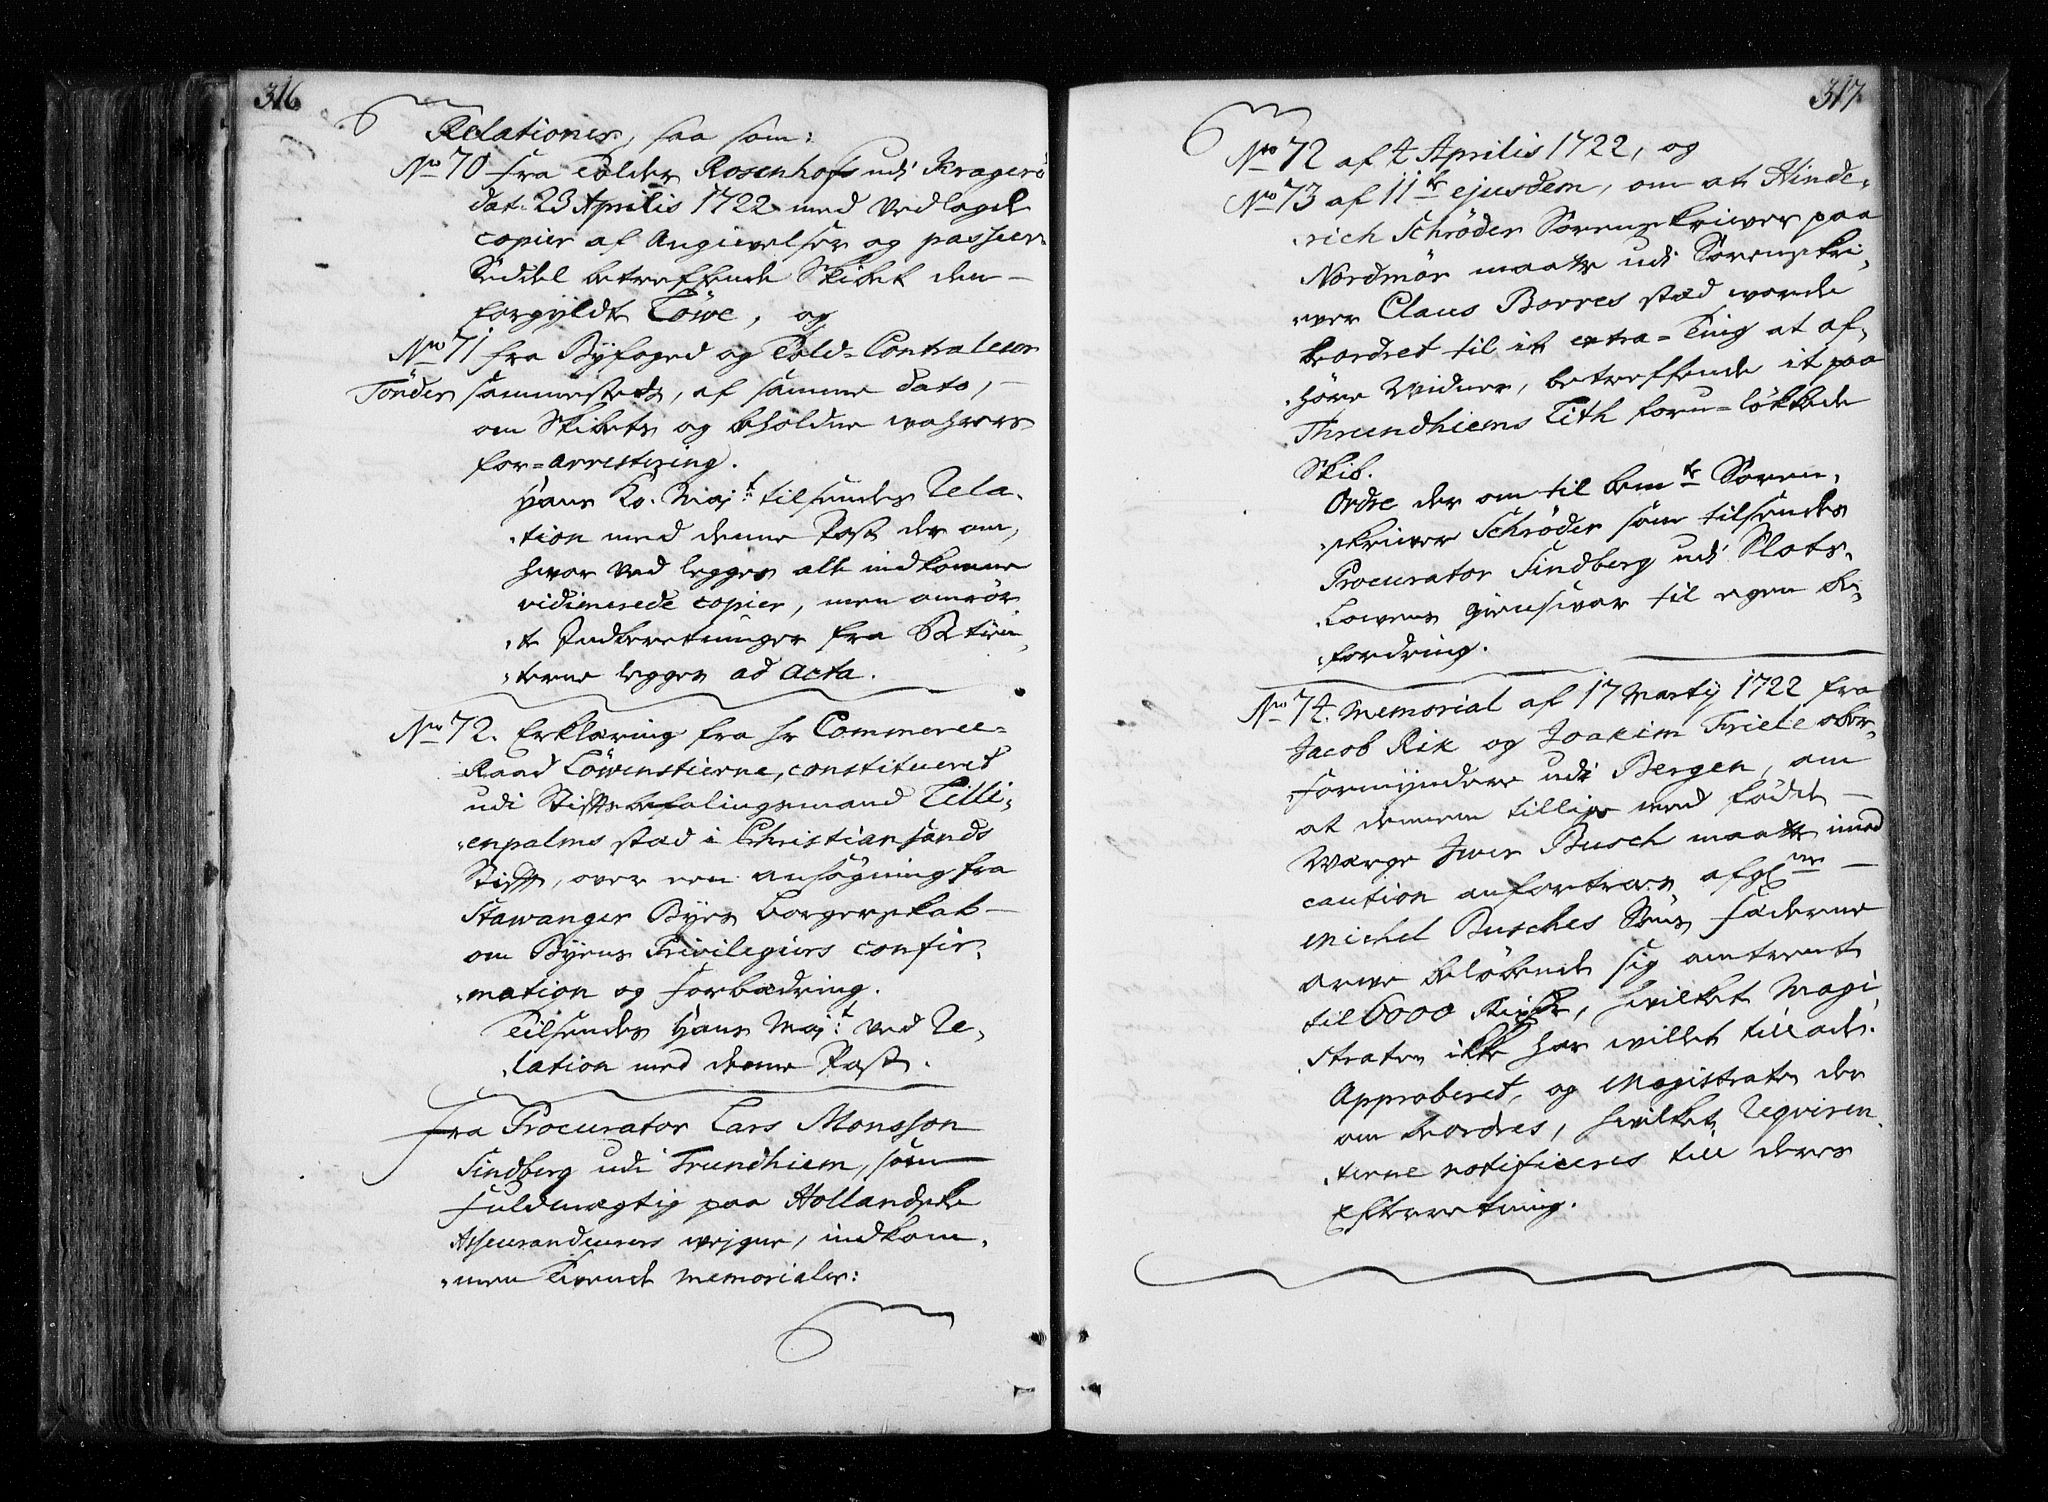 316
Relationer, saa som:
No 70 fra Tolder Rosenhof udi Kragerö
dat. 23 Aprilis 1722 med Vedlagde
copier af Angivelser og passeer
Seddel betreffende Skibet den
forgyldte Löwe, og
No 71 fra Byfoged og Told-Contraleur
Tönder sammesteds, af samme dato,
om Skibets og beholdne wahrers
for-arrestering.
Hans Ko. Maj:t tilsendes Rela-
-tion med denne Post der om,
hvor ved legges alle indkomne
vidimerede copier, men omrör-
-te Indberetninger fra Betien-
-terne legges ad acta.
No 72. Erklæring fra hr Commerce-
-Raad Löwenstierne, constitueret
udi Stiftsbefalingsmand Lilli-
-enpalms stæd i Christiansands
Stift, over een ansögning fra
Stawanger Byes Borgerskab
om Byens Privilegiers confir-
-mation og Forbædring.
Tilsendes Hans Maj:t ved Re-
-lation med denne Post.
Fra Procurator Lars Monsson
Lindberg udi Trundhiem, som
Fuldmægtig paa Hollandske
Asseurandeurers vejgne, indkom-
-men Tvende Memorialer:
317
No 72 af 4 Aprilis 1722, og
No 73 af 11te ejusdem, om at Hinde-
-rich Schröder Sorenskriwer paa
Nordmör maatte udi Sorenskri-
-wer Claus Borres stæd worde
beordret til it extra-Ting at af-
-höre Widner, betreffende it paa
Thrundhiems Leth foru-lökkede
Skib.
Ordre der om til bem:te Soren-
-skriwer Schröder som tilsendes
Procurator Lindberg udi Slots-
-Lowens giensvar til egen be-
-fordring.
No 74. Memorial af 17 Marty 1722 fra
Jacob Rik og Joakim Friele ober-
-Formyndere udi Bergen, om
at dennem tillige med födde
Wærge Iwer Busch maatte imod
caution anfortroes afg:ne
Michel Busches Söns Fæderne
arve belöbende sig omtrent
til 6000 Rixdr, hvilket Magi-
-straten ikke har willet tillade.
Approberet, og Magistraten der
om beordres, hvilket Reqviren-
-terne notificeres till deres
Efterretning.